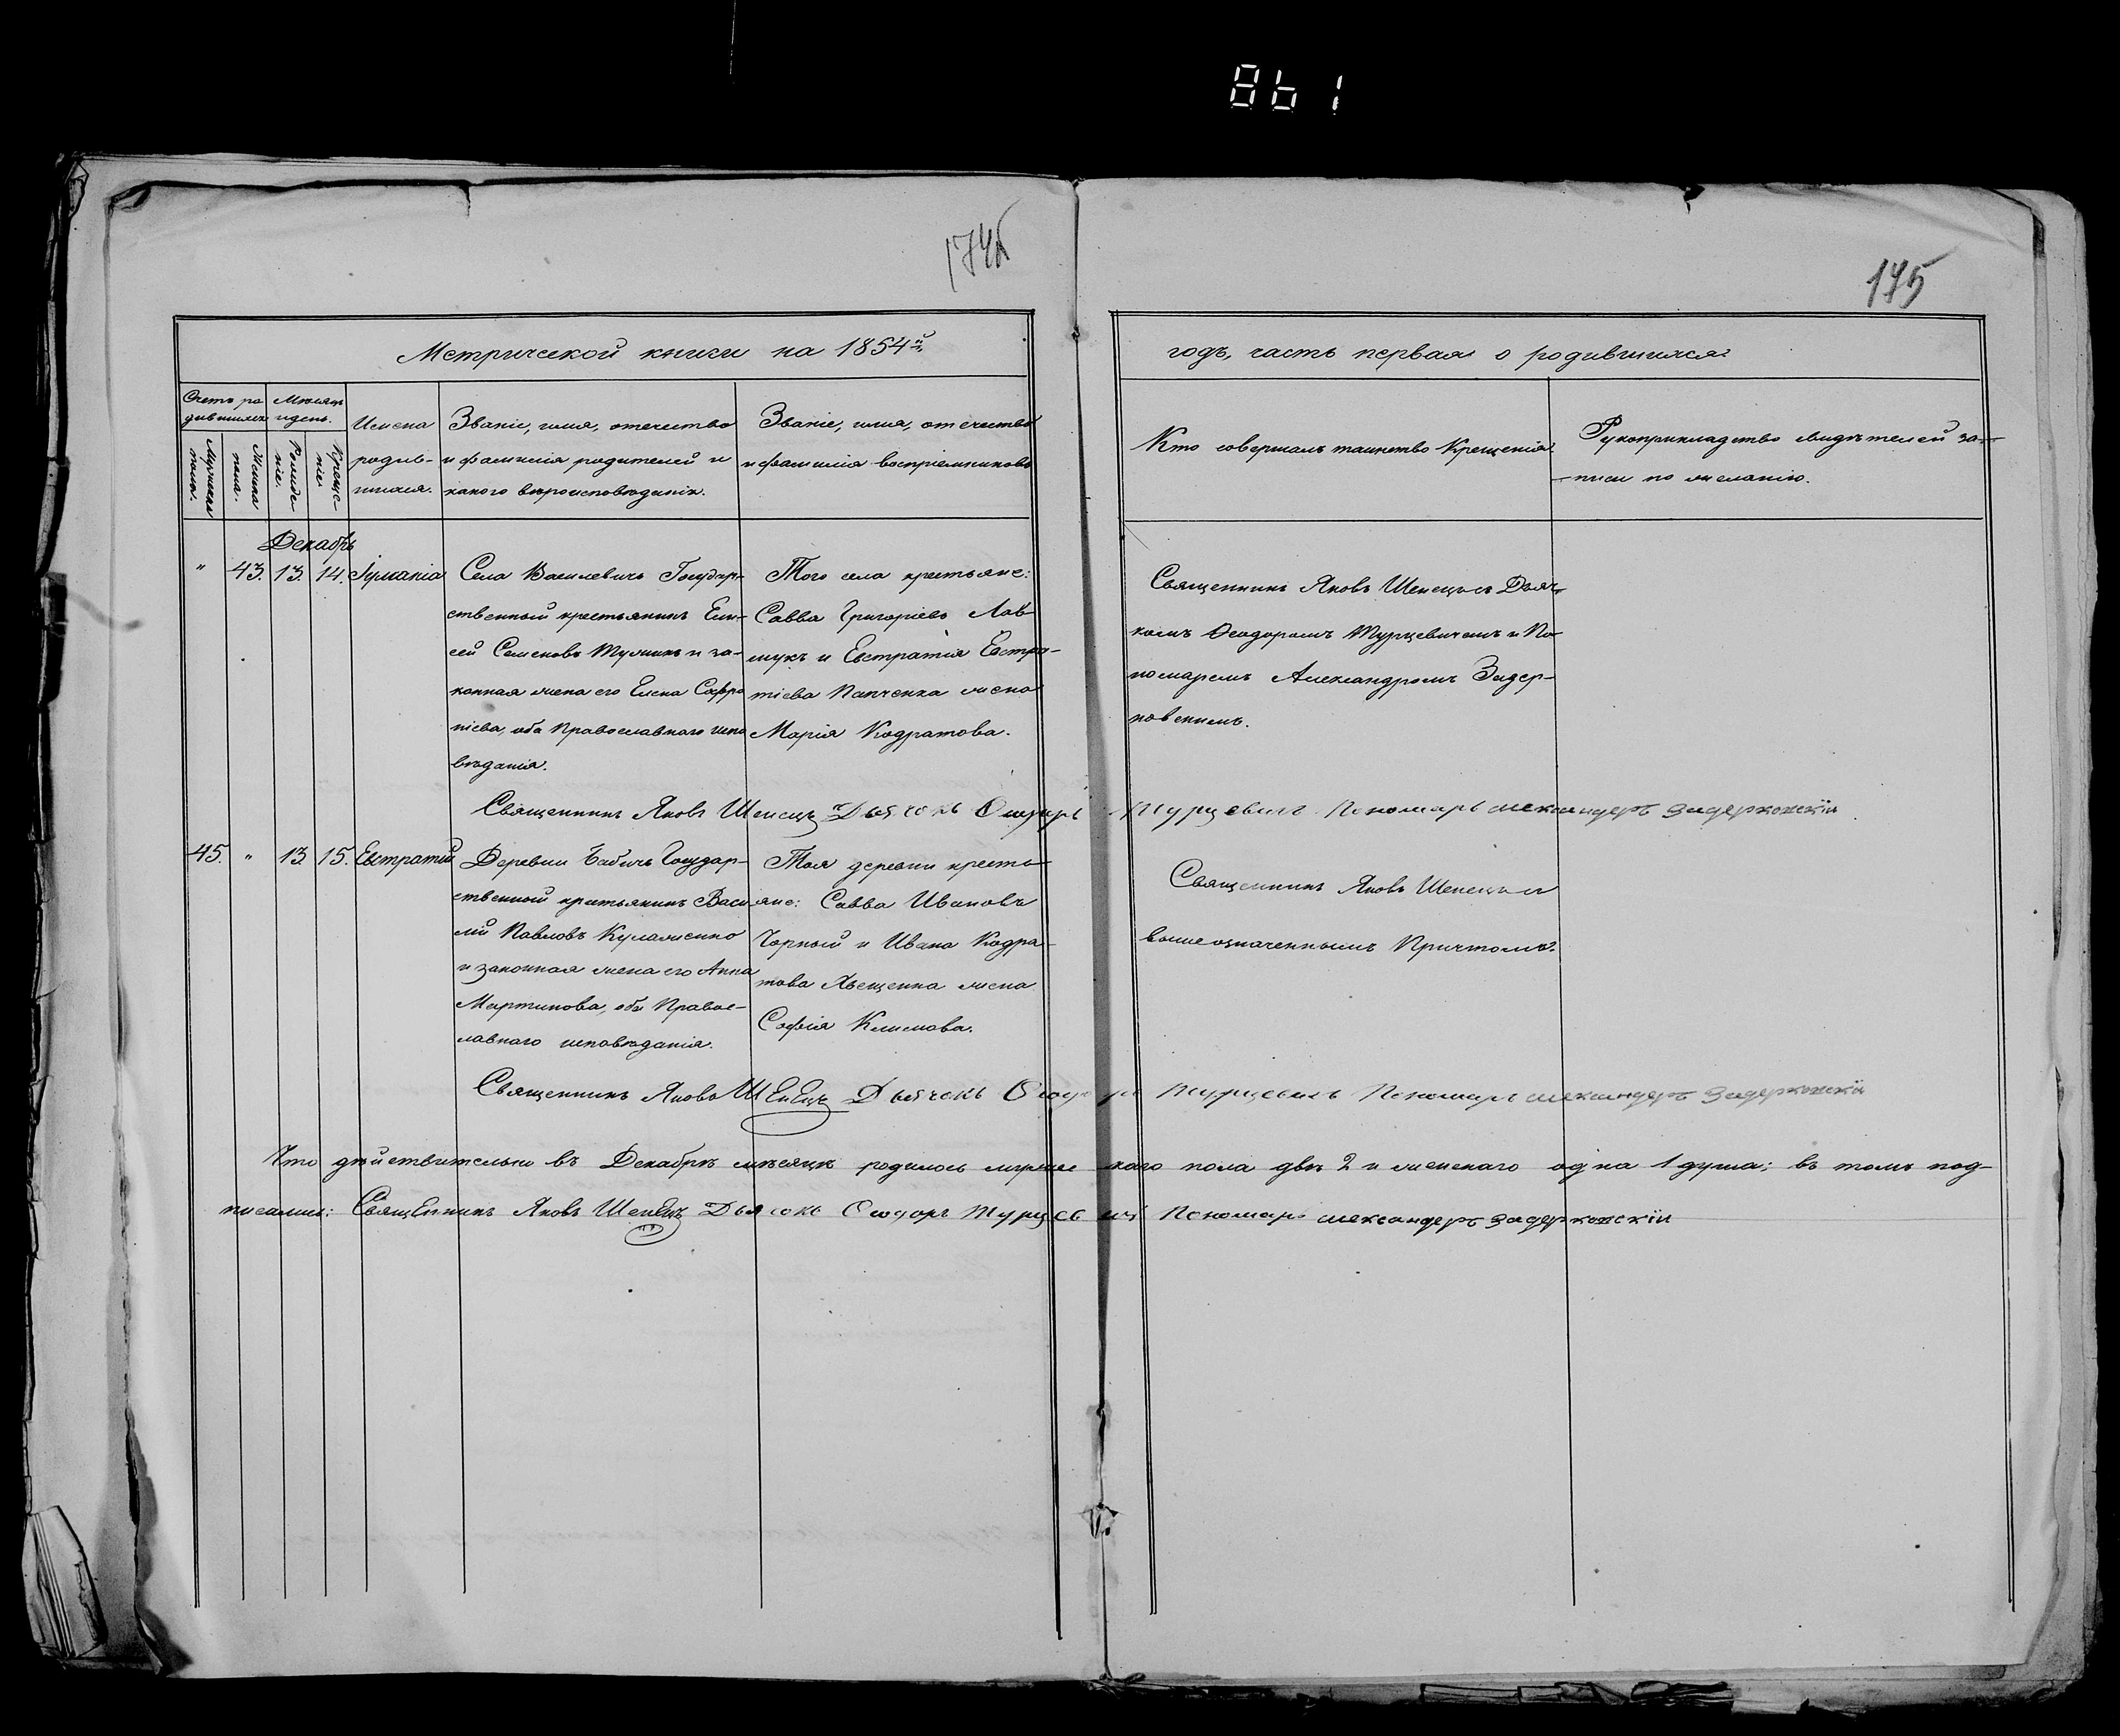 861
174б
175
Метрической книги на 1854й
годъ, часть первая о родившихся
Счетъ ро
дившихся
Мѣсяцъ
и день.
Мужеска
пола.
Женска
пола.
Рожде-
ніе.
Креще-
ніе.
Имена
родив-
шихся.
Званіе, имя, отечество
и фамилія родителей и
какого вѣроисповѣданія.
Званіе, имя, отечество
и фамилія воспріемниковъ
Кто совершалъ таинство Крещенія.
Рукоприкладство свидѣтелей за-
писи по желанію.
Декабрь
" 43. 13. 14. Іуліанія
Села Василевичъ Государ-
ственный крестьянинъ Ели-
сей Семеновъ и за-
конная жена его Елена Софро
ніева, оба Православнаго испо
вѣданія.
Того села крестьяне:
Савва Григоріевъ
и Евстратія Евстра-
тіева жена
Марія Кодратова.
Священникъ Яковъ Шенецъ съ Дьяч-
комъ Ѳеодоромъ Турцевичемъ и По-
номаремъ Александромъ Задер-
ковскимъ.
Священникъ Яковъ Шенецъ Дьячокъ Ѳеодоръ Турцевичъ Пономарь Александеръ Задерковскій
45. " 13 15. Евстратій
Деревни Бабичъ Государ-
ственный крестьянинъ Васи-
лій Павловъ
и законная жена его Анна
Мартинова, оба Правос-
лавнаго исповѣданія.
Тоя деревни кресть-
яне: Савва Ивановъ
Чорный и Ивана Кодра-
това жена
Софія Климова.
Священникъ Яковъ Шенецъ съ
вышеозначеннымъ Причтомъ.
Священникъ Яковъ Шенецъ Дьячокъ Ѳеодоръ Турцевичъ Пономарь Александеръ Задерковскій
Что дѣйствительно въ Декабрѣ мѣсяцѣ родилось мужескаго пола двѣ 2 и женскаго одна 1 душа; въ томъ под-
писались: Священникъ Яковъ Шенецъ Дьячокъ Ѳеодоръ Турцевичъ Пономарь Александеръ Задерковскій